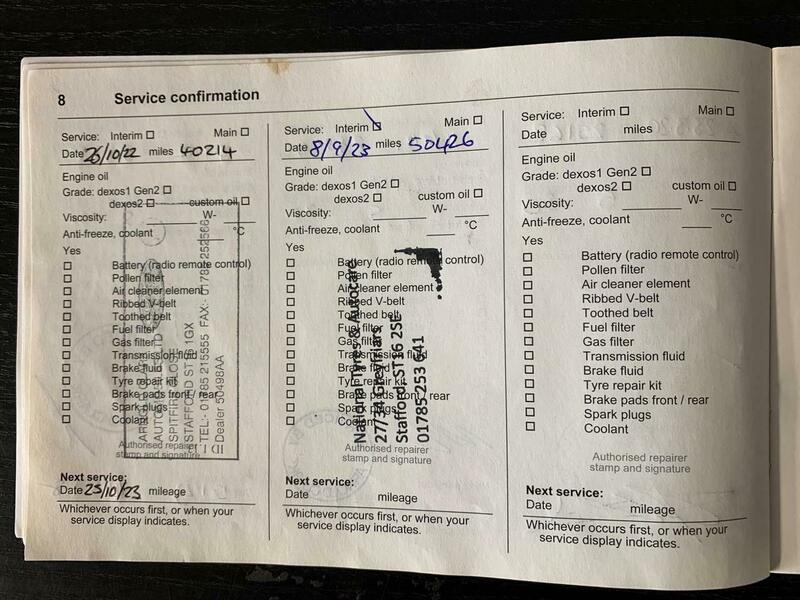 8 Service confirmation
Service: Interim Main
Date 26/10/22 miles 40214
Engine oil
Grade: dexos1 Gen2
dexos2 custom oil
Viscosity: W-
Anti-freeze, coolant °C
Yes
Battery (radio remote control)
Pollen filter
Air cleaner element
Ribbed V-belt
Toothed belt
Fuel filter
Gas filter
Transmission fluid
Brake fluid
Tyre repair kit
Brake pads front / rear
Spark plugs
Coolant
SPITFIRE CLOSE
STAFFORD ST16 1GX
TEL:- 01785 215555 FAX:-
Dealer 50498AA
Authorised repairer
stamp and signature
Next service:
Date 25/10/23 mileage
Whichever occurs first, or when your
service display indicates.
Service: Interim Main
Date 8/9/23 miles 50426
Engine oil
Grade: dexos1 Gen2
dexos2 custom oil
Viscosity: W-
Anti-freeze, coolant °C
Yes
Battery (radio remote control)
Pollen filter
Air cleaner element
Ribbed V-belt
Toothed belt
Fuel filter
Gas filter
Transmission fluid
Brake fluid
Tyre repair kit
Brake pads front / rear
Spark plugs
Coolant
National Tyres & Autocare
27/34 Greyfriars
Stafford ST16 2SE
01785 253 641
Authorised repairer
stamp and signature
Next service:
Date mileage
Whichever occurs first, or when your
service display indicates.
Service: Interim Main
Date miles
Engine oil
Grade: dexos1 Gen2
dexos2 custom oil
Viscosity: W-
Anti-freeze, coolant °C
Yes
Battery (radio remote control)
Pollen filter
Air cleaner element
Ribbed V-belt
Toothed belt
Fuel filter
Gas filter
Transmission fluid
Brake fluid
Tyre repair kit
Brake pads front / rear
Spark plugs
Coolant
Authorised repairer
stamp and signature
Next service:
Date mileage
Whichever occurs first, or when your
service display indicates.